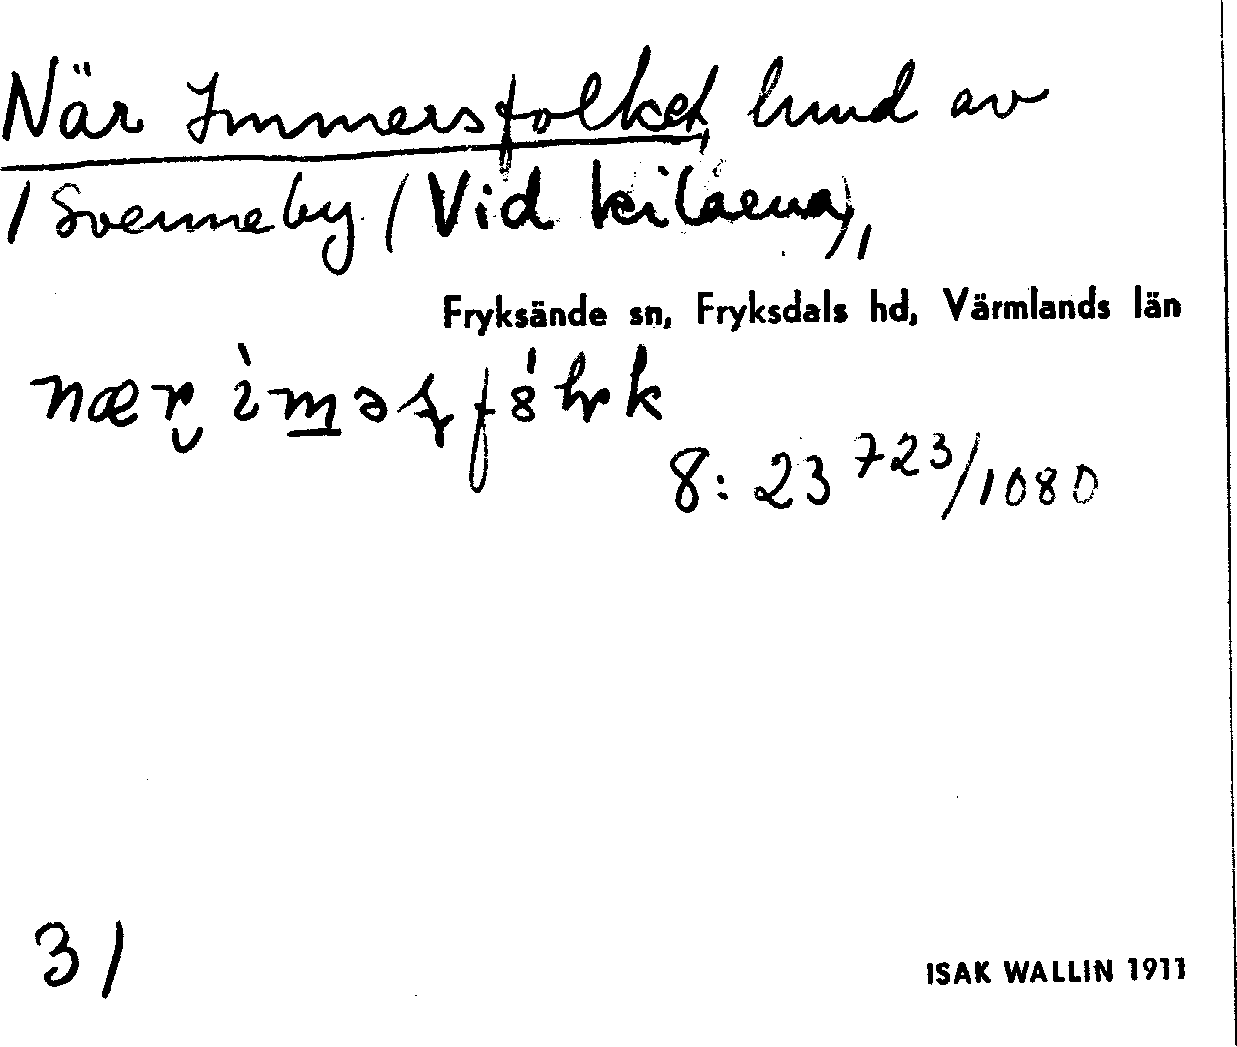 När Immersfolket, hund av
/ Svenneby (Vid kilarna),
Fryksände sn, Fryksdals hd, Värmlands län
8: 23 723/1080
3/
ISAK WALLIN 1911